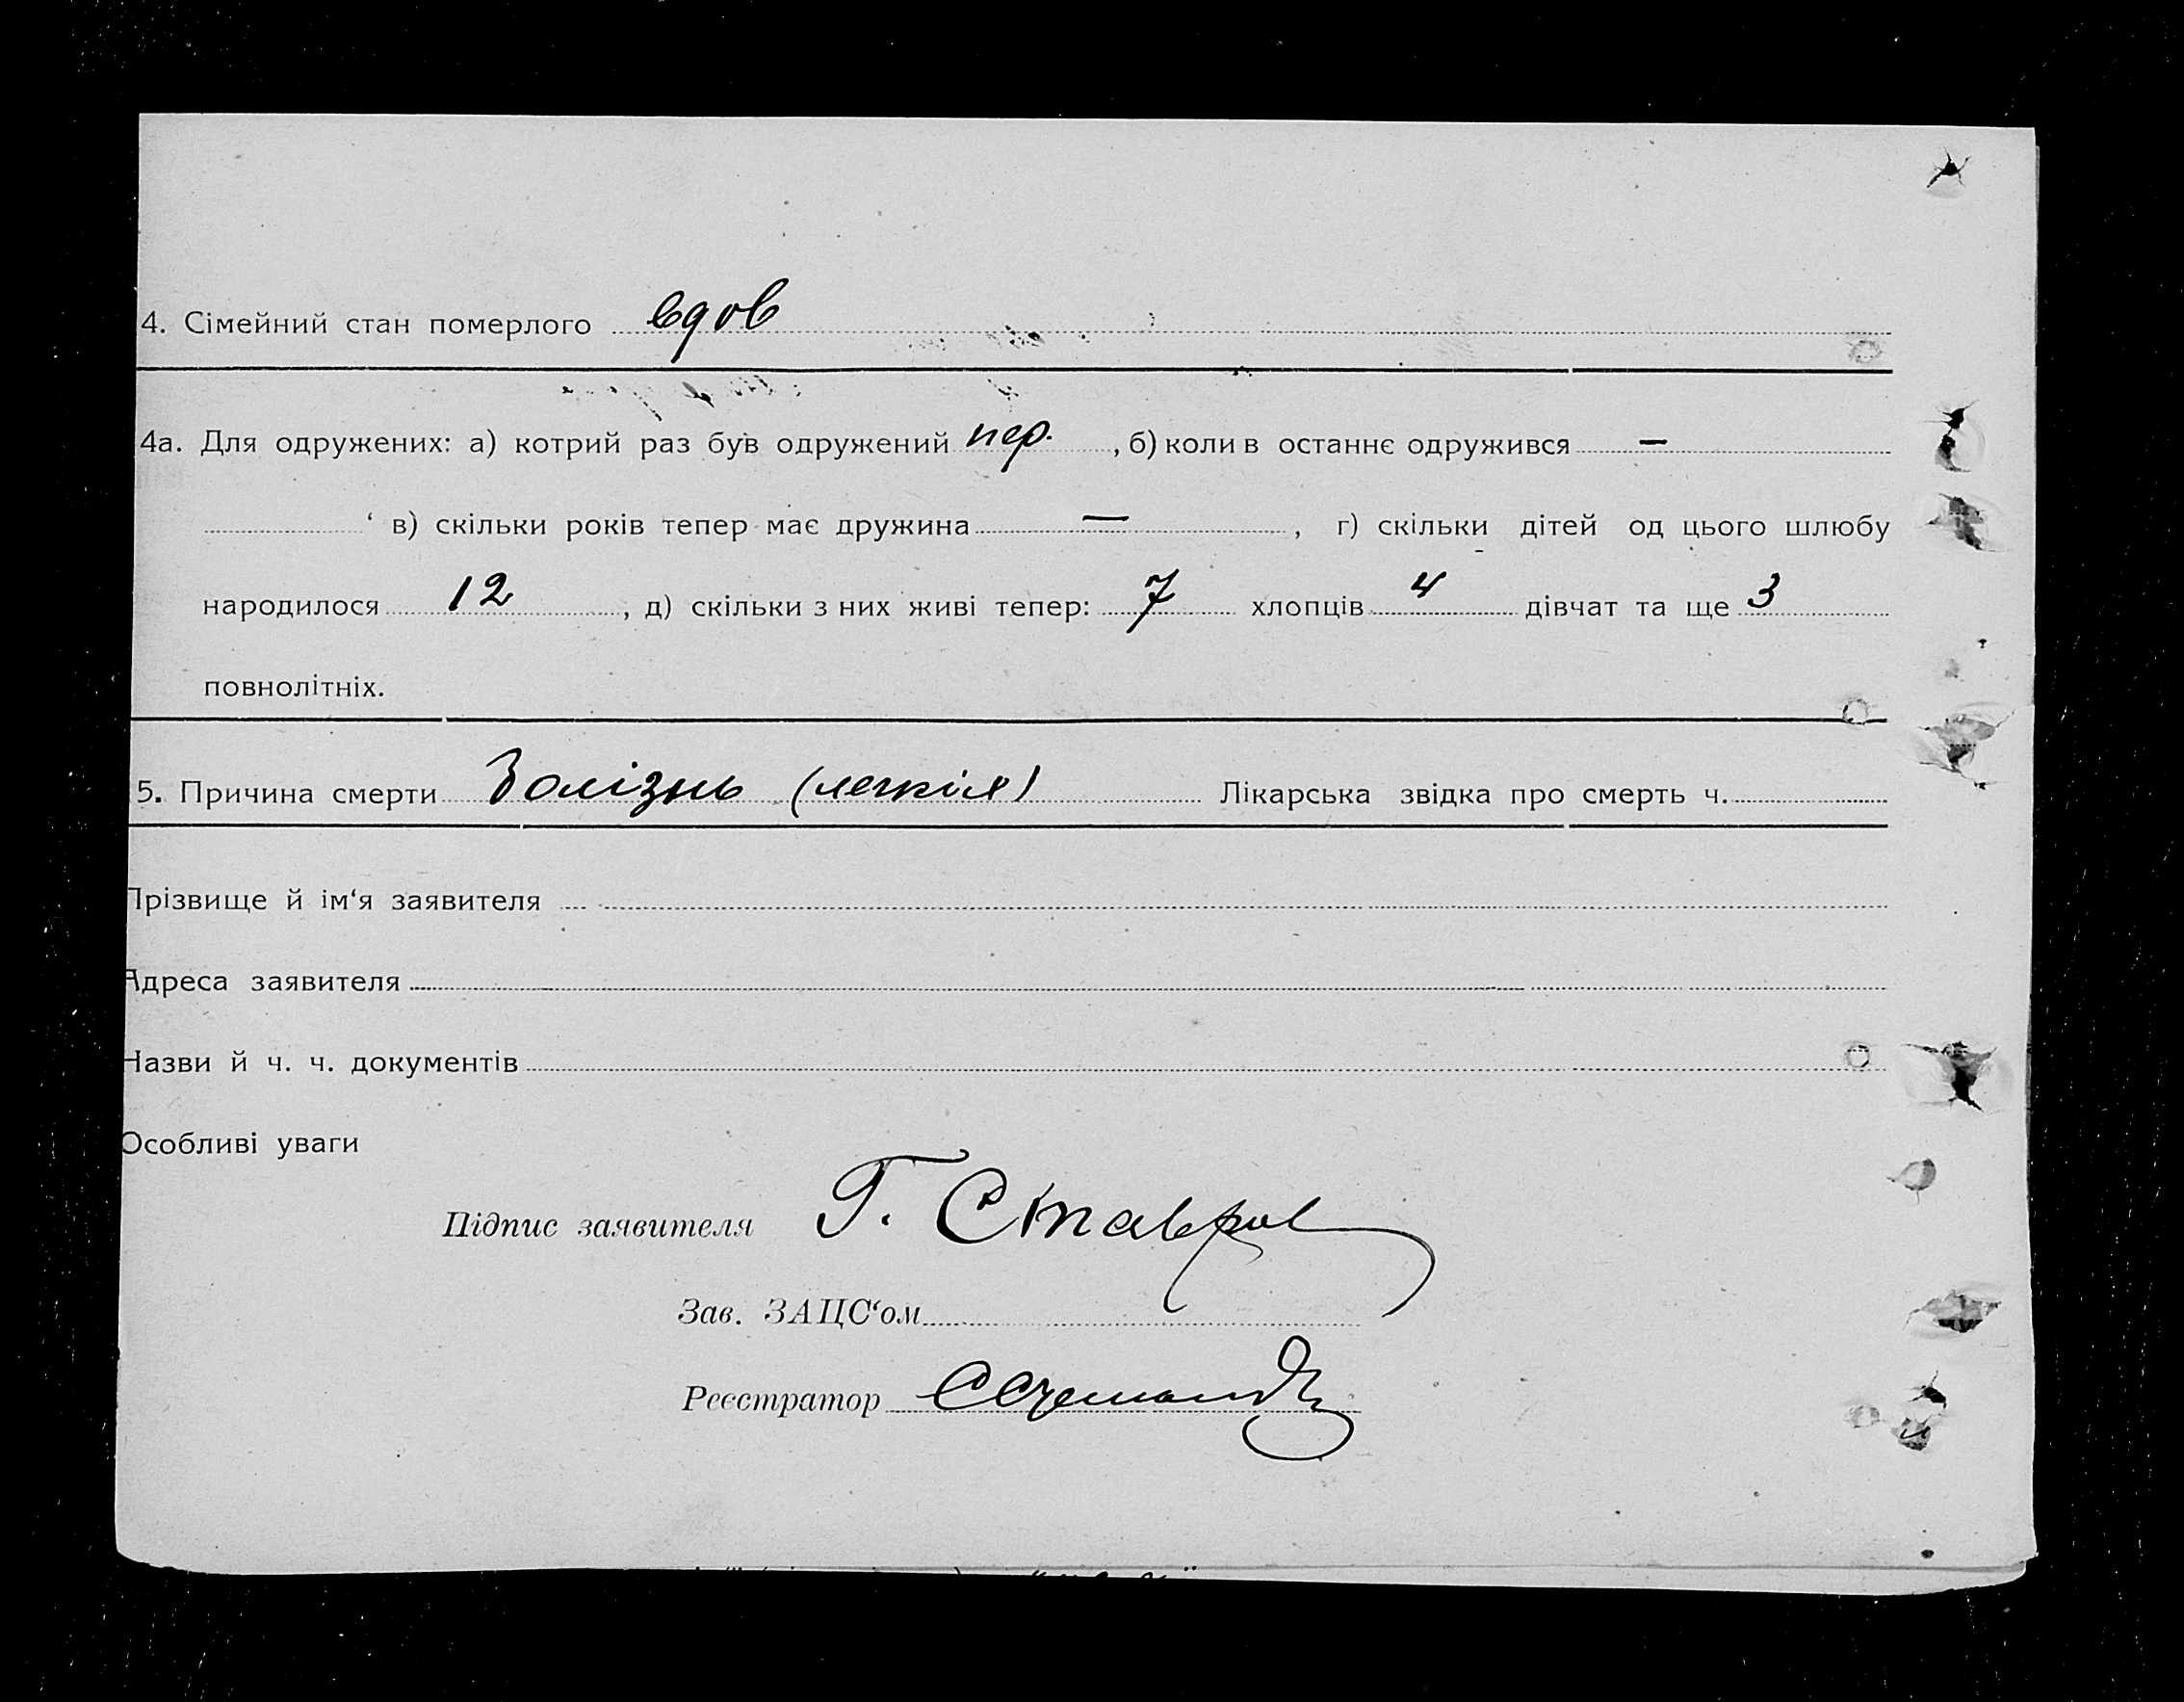 4. Сімейний стан померлого вдов
4а. Для одружених: а) котрий раз був одружений пер. , б) коли в останнє одружився —
‘ в) скільки років тепер має дружина — , г) скільки дітей од цього шлюбу
народилося 12 , д) скільки з них живі тепер: 7 хлопців 4 дівчат та ще 3
повнолітніх.
5. Причина смерти Болізнь (легкіх) Лікарська звідка про смерть ч.
Прізвище й ім‘я заявителя
Адреса заявителя
Назви й ч. ч. документів
Особливі уваги
Підпис заявителя Г. Ставров
Зав. ЗАЦС‘ом
Реєстратор